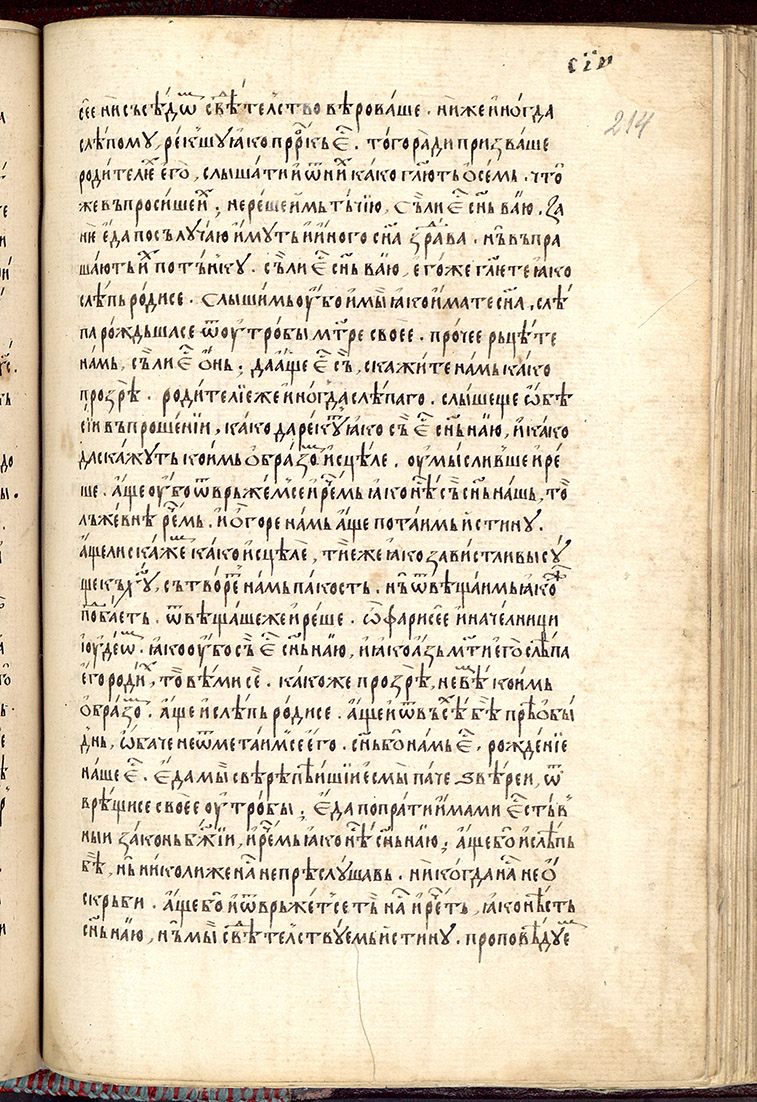 сїи
214
сее нисъсѣдѡ свѣтелство вѣроваше . ниже иногда
слѣпому , рекшу ꙗко прⷪркъ єⷭ . того ради призваше
родителїе его , слышати и ѿ ниⷯ како глⷭють ѻ семь . что
же въпросишеиⷯ ; не реше имь тъчїю , съ ли єⷭ снь ваю . за
нѥ еда по сълучаю имуть и иного сна здрава . нъ въпра
шають иⷯ по тънку . съ ли єⷭ снь ваю , егоже глете ꙗко
слѣпь родисе . слышимь ѹбо и мы ꙗко имате сна , слѣ
па рождьшасе ѿ ѹтробы мтре своее . прочее рьцѣте
намь , съ ли єⷭ ѻнь ; да аще єⷭ съ , скажите намь како
прозрѣ . родителїе же иногда слѣпаго . слышеще ѡ вѣ
сїи въпрошенїи , како да рекуть ꙗко съ єⷭ снь наю , и како
да скажуть коимь ѻбразо исцѣле . ѹмысливше и ре
ше . аще ѹбо ѿврьжемсе и рⷱемь ꙗко нѣⷭ съ снь нашь , то
лъже вне рⷱемь . и ѻ горе намь аще потаимь истину .
аще ли скаже како исцѣлѣ , тїи еже ꙗко завистливы су
ще къ хⷭу , сътворе намь пакость . нъ ѿвѣщаимь ꙗкоⷤ
пⷣобаеть . ѿвѣщаше же и реше . ѡ фарисее и началници
їюдеѡ . ꙗко ѹбо съ єⷭ снь наю , и ꙗко азь мти его слѣпа
его родиⷯ , то вѣми се . како же прозрѣ , не вѣ коимь
ѻбразо . аще и слѣпь родисе . аще и ѿ въсѣⷯ бѣ прѣѻбы
днь , ѡбаче не ѿметаимсе его . снь бо намь єⷭ . рожденїе
наше єⷭ . еда мы сверѣпѣишїи есмы паче ѕвѣреи , ѿ
врѣщисе своее ѹтробы ; еда попрати имами єстьвⷭ
ныи законь бжїи , и рⷱемь ꙗко нѣⷭ снь наю ; аще бо и слѣпь
бѣ , нь николиже наⷭ не прѣслушавь . никогда наⷭ не ѻ
скрьби . аще бо и ѿврьжетсе тъ наⷭ и рⷱеть , ꙗко нѣсть
снь наю , нъ мы свѣтелствуемь истину . проповѣдуе